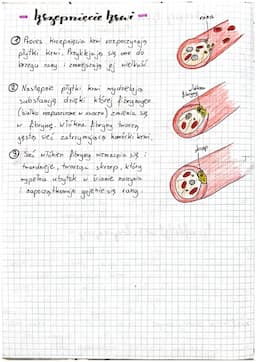 krzepnięcie krwi
rana
① Proces krzepnięcia krwi rozpoczynają
płytki krwi. Przyklejają się one do
brzegu rany i zmniejszają jej wielkość
② Następnie płytki krwi wydzielają
substancję dzięki której fibrynogen
(białko rozpuszczone w osoczu) zmienia się
w fibrynę. Włókna fibryny tworzą
gęstą sieć zatrzymującą komórki krwi.
włókna
fibryny
③ Sieć włókien fibryny zmniejsza się i
twardnieje, tworząc skrzep, który
wypełnia ubytek w ścianie naczynia
i zapoczątkowuje gojenie się rany.
skrzep